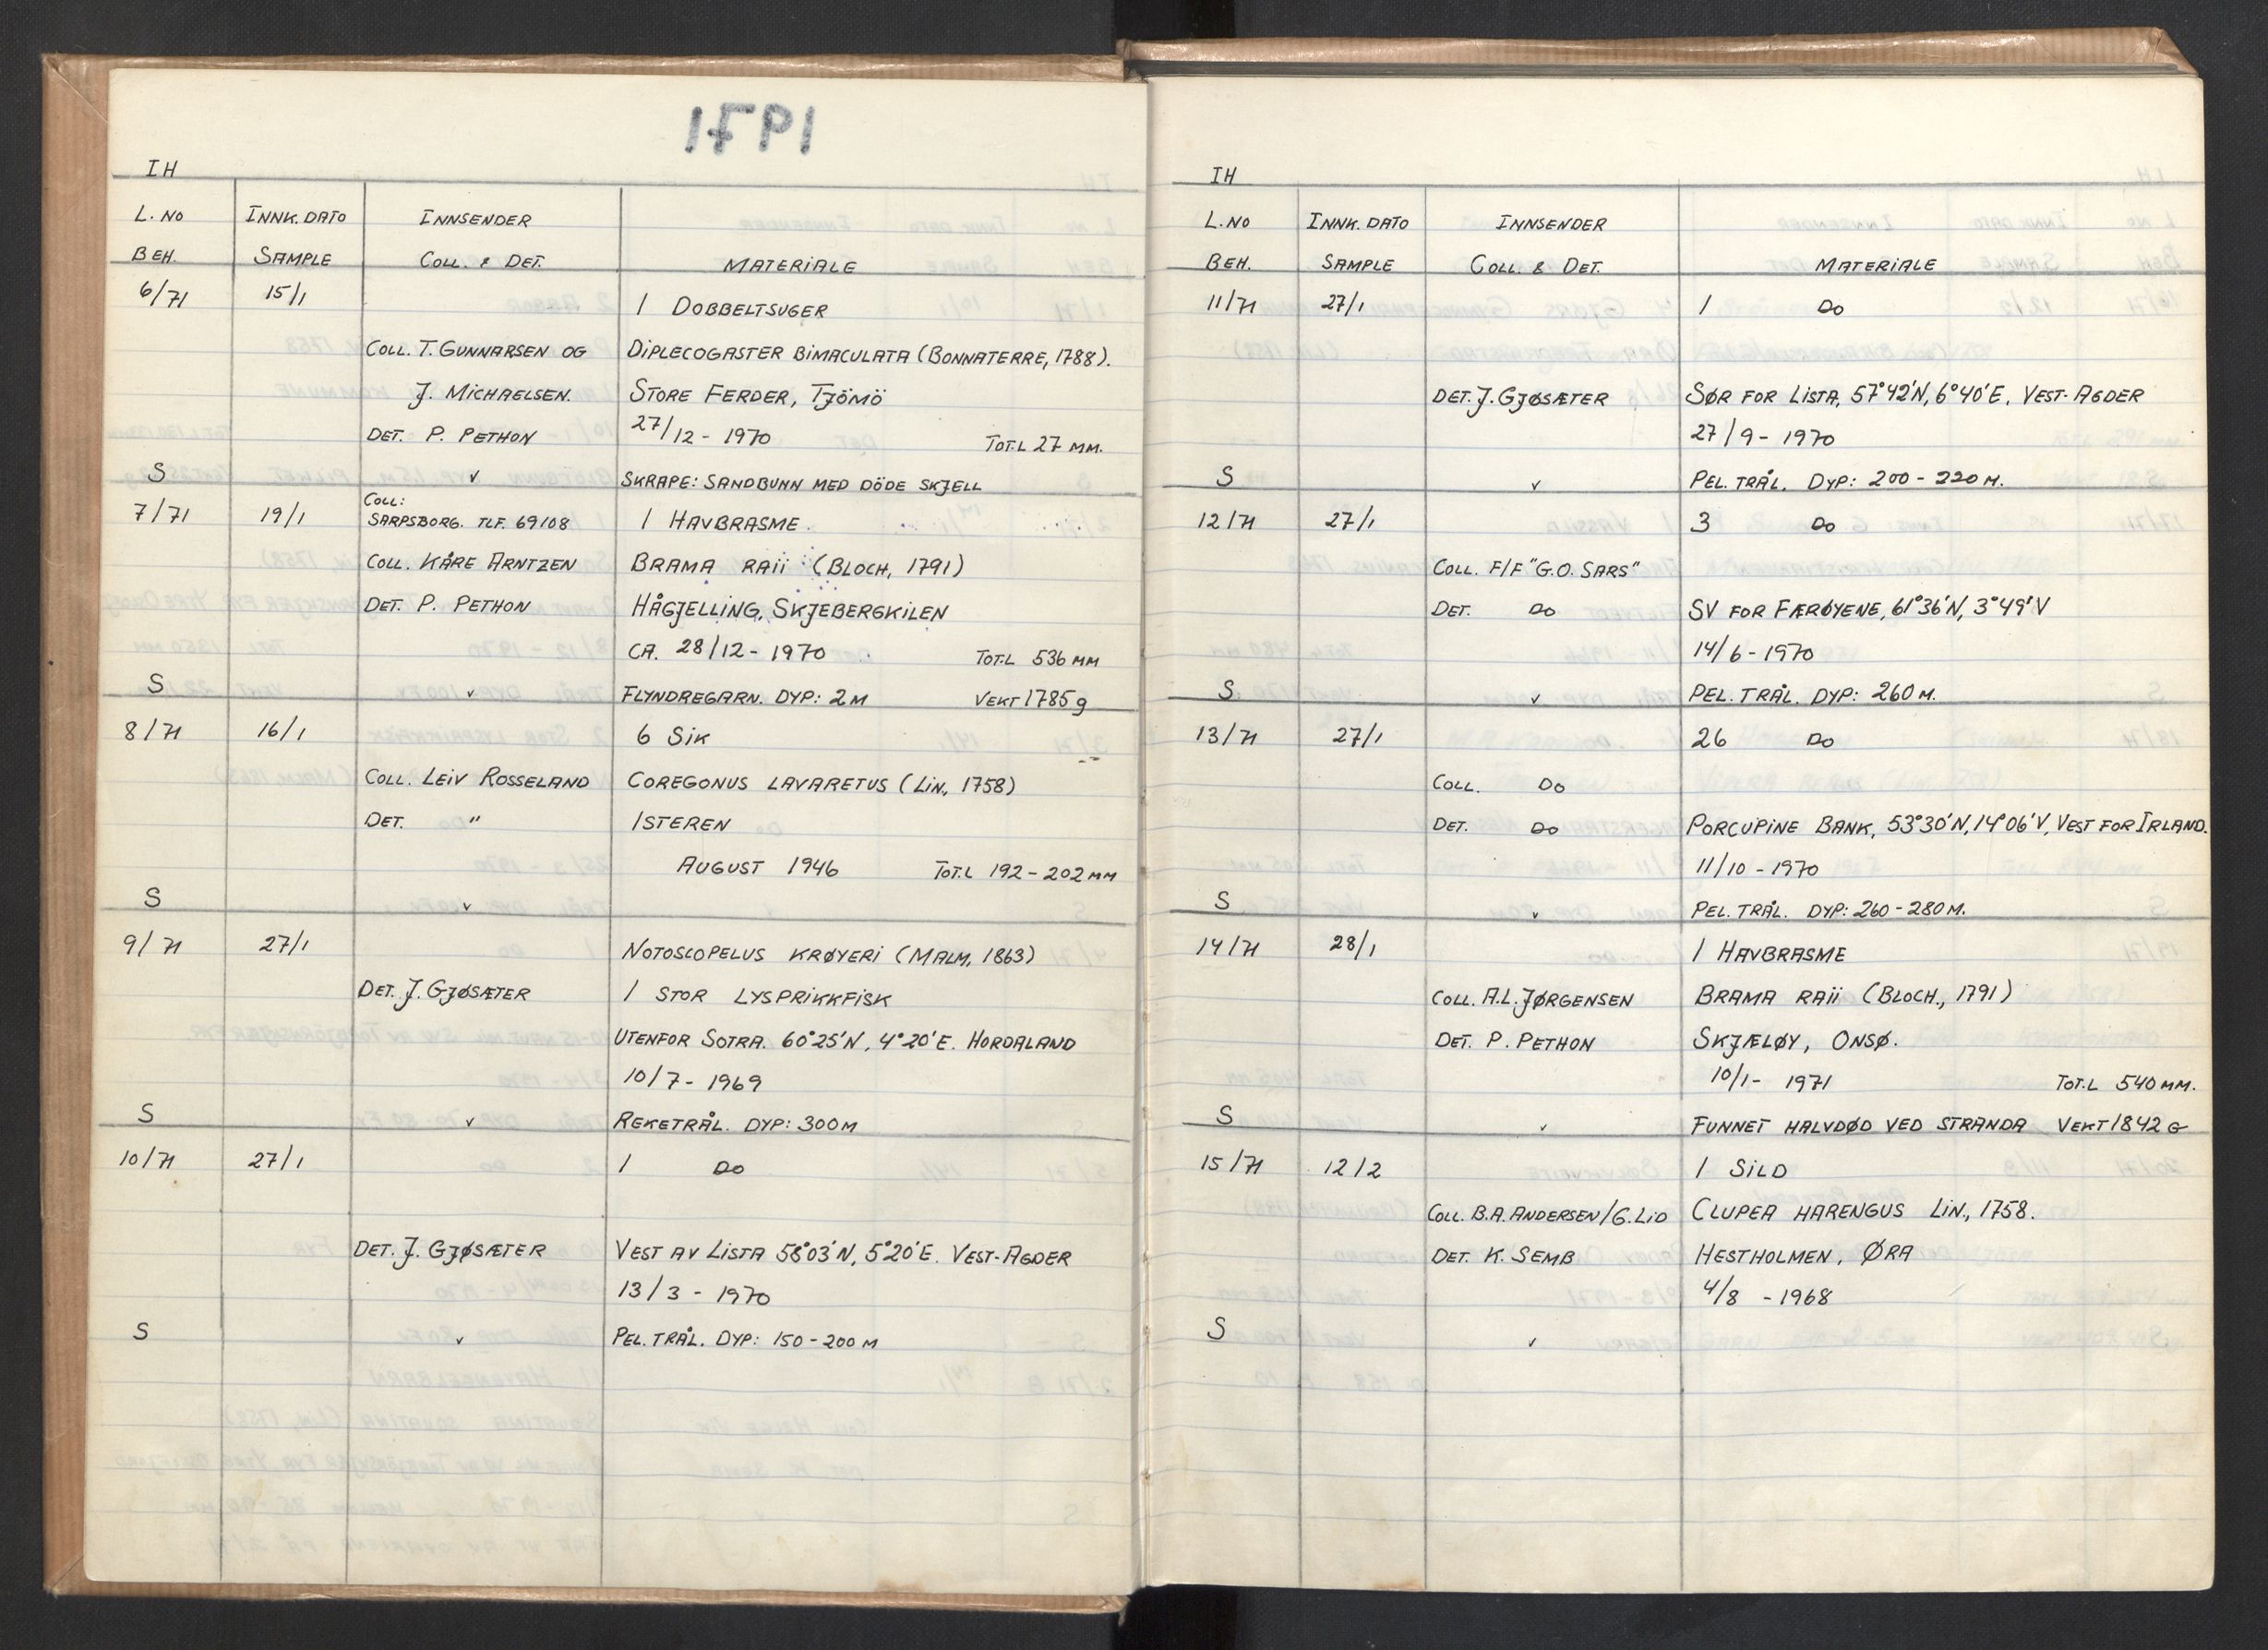 IH
L. NO INNK. DATO INNSENDER
BEH. SAMPLE COLL. & DET. MATERIALE
6/71 15/1 1 DOBBELTSUGER
COLL. T. GUNNARSEN OG DIPLECOGASTER BIMACULATA (BONNATERRE, 1788).
J. MICHAELSEN. STORE FERDER, TJÖMÖ
DET. P. PETHON 27/12 - 1970 TOT.L 27 MM.
S ✓ SKRAPE: SANDBUNN MED DÖDE SKJELL
7/71 19/1 COLL: SARPSBORG. TLF. 69108 1 HAVBRASME.
COLL. KÅRE ARNTZEN BRAMA RAII (BLOCH, 1791)
DET. P. PETHON HÅGJELLING, SKJEBERGKILEN
CA. 28/12 - 1970 TOT.L 536 MM
S ✓ FLYNDREGARN. DYP: 2 M VEKT 1785 g
8/71 16/1 6 SIK
COLL. LEIV ROSSELAND COREGONUS LAVARETUS (LIN, 1758)
DET. " ISTEREN
AUGUST 1946 TOT.L 192 - 202 MM
S ✓
9/71 27/1 NOTOSCOPELUS KRØYERI (MALM, 1863)
DET. J. GJØSÆTER 1 STOR LYSPRIKKFISK
UTENFOR SOTRA. 60°25'N, 4°20'E. HORDALAND
10/7 - 1969
S ✓ REKETRÅL. DYP: 300 M
10/71 27/1 1 DO
DET. J. GJØSÆTER VEST AV LISTA 58°03'N, 5°20'E. VEST-AGDER
13/3 - 1970
S ✓ PEL. TRÅL. DYP: 150 - 200 M
IH
L. NO INNK. DATO INNSENDER
BEH. SAMPLE COLL. & DET. MATERIALE
11/71 27/1 1 DO
DET. J. GJØSÆTER SØR FOR LISTA, 57°42'N, 6°40'E. VEST-AGDER
27/9 - 1970
S ✓ PEL. TRÅL. DYP: 200 - 220 M.
12/71 27/1 3 DO
COLL. F/F "G.O. SARS"
DET. DO SV FOR FÆRØYENE, 61°36'N, 3°49'V
14/6 - 1970
S ✓ PEL. TRÅL. DYP: 260 M.
13/71 27/1 26 DO
COLL. DO
DET. DO PORCUPINE BANK, 53°30'N, 14°06'V, VEST FOR IRLAND.
11/10 - 1970
S ✓ PEL. TRÅL. DYP: 260 - 280 M.
14/71 28/1 1 HAVBRASME
COLL. A.L. JØRGENSEN BRAMA RAII (BLOCH., 1791)
DET. P. PETHON SKJÆLØY, ONSØ.
10/1 - 1971 TOT.L 540 MM.
S ✓ FUNNET HALVDØD VED STRANDA VEKT 1842 G
15/71 12/2 1 SILD
COLL. B.A. ANDERSEN/G. LID CLUPEA HARENGUS LIN., 1758.
DET. K. SEMB HESTHOLMEN, ØRA
4/8 - 1968
S ✓